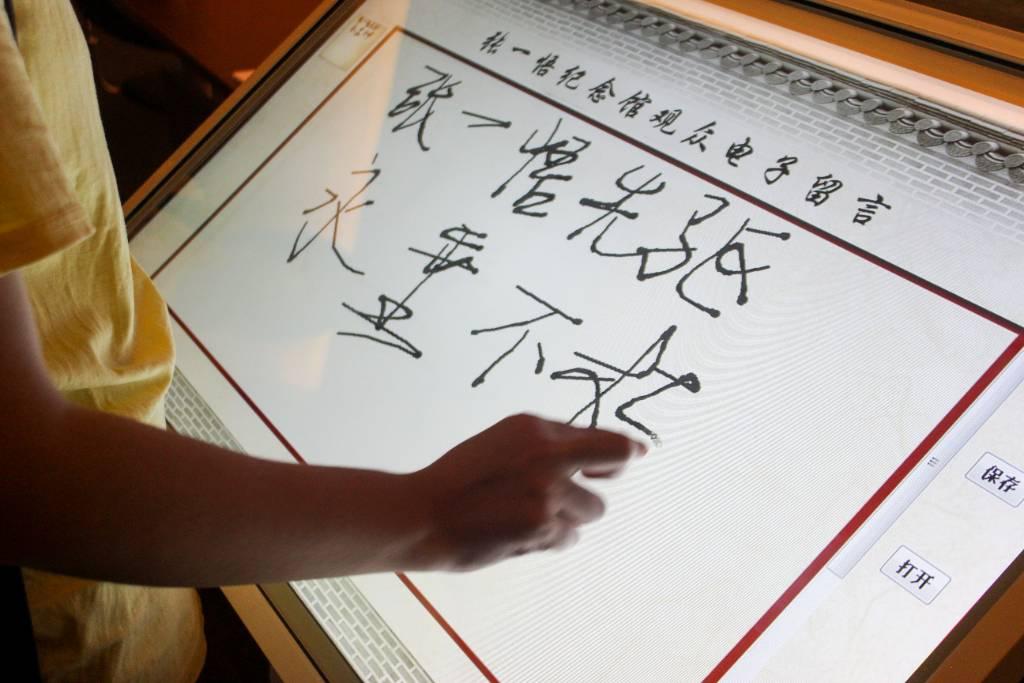 张一悟纪念馆观众电子留言
张一悟先驱
永垂不朽
保存
打开